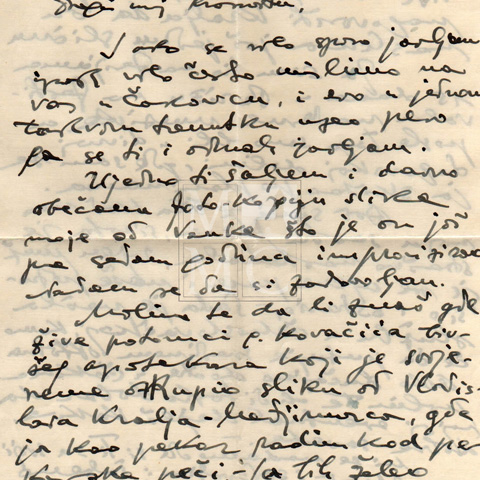 Dragi moj
Iako se vrlo sporo javljam
ipak vrlo često mislimo na
vas u Čakovcu, i evo u jednom
takvom trenutku uzeo pero
pa se ti i odmah javljam.
Ujedno ti šaljem i davno
obećanu foto-kopiju slike
moje od Vanke što je on još
pre sedam godina improvizirao
Nadam se da si zadovoljan.
Molim te da li znaš gde
žive potomci g. Kovačića biv-
šeg apotekara koji je svoje-
vremeno otkupio sliku od Vladis-
lava Kralja-Medjimurca, gde
ja kao pekar radim kod pe-
karske peći, -